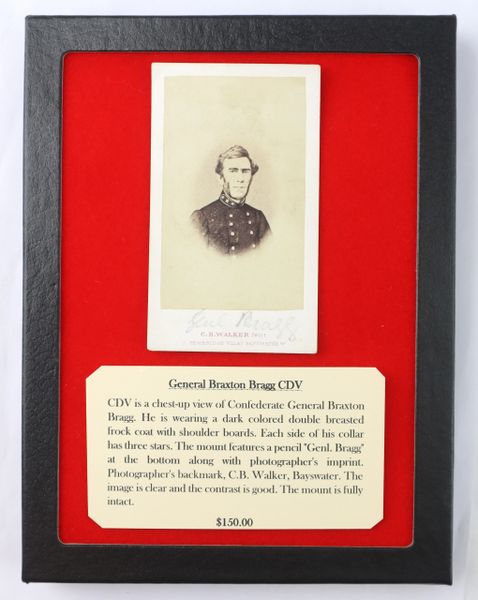 Genl. Bragg
C.B. WALKER
General Braxton Bragg CDV
CDV is a chest-up view of Confederate General Braxton
Bragg. He is wearing a dark colored double breasted
frock coat with shoulder boards. Each side of his collar
has three stars. The mount features a pencil "Genl. Bragg"
at the bottom along with photographer's imprint.
Photographer's backmark, C.B. Walker, Bayswater. The
image is clear and the contrast is good. The mount is fully
intact.
$150.00